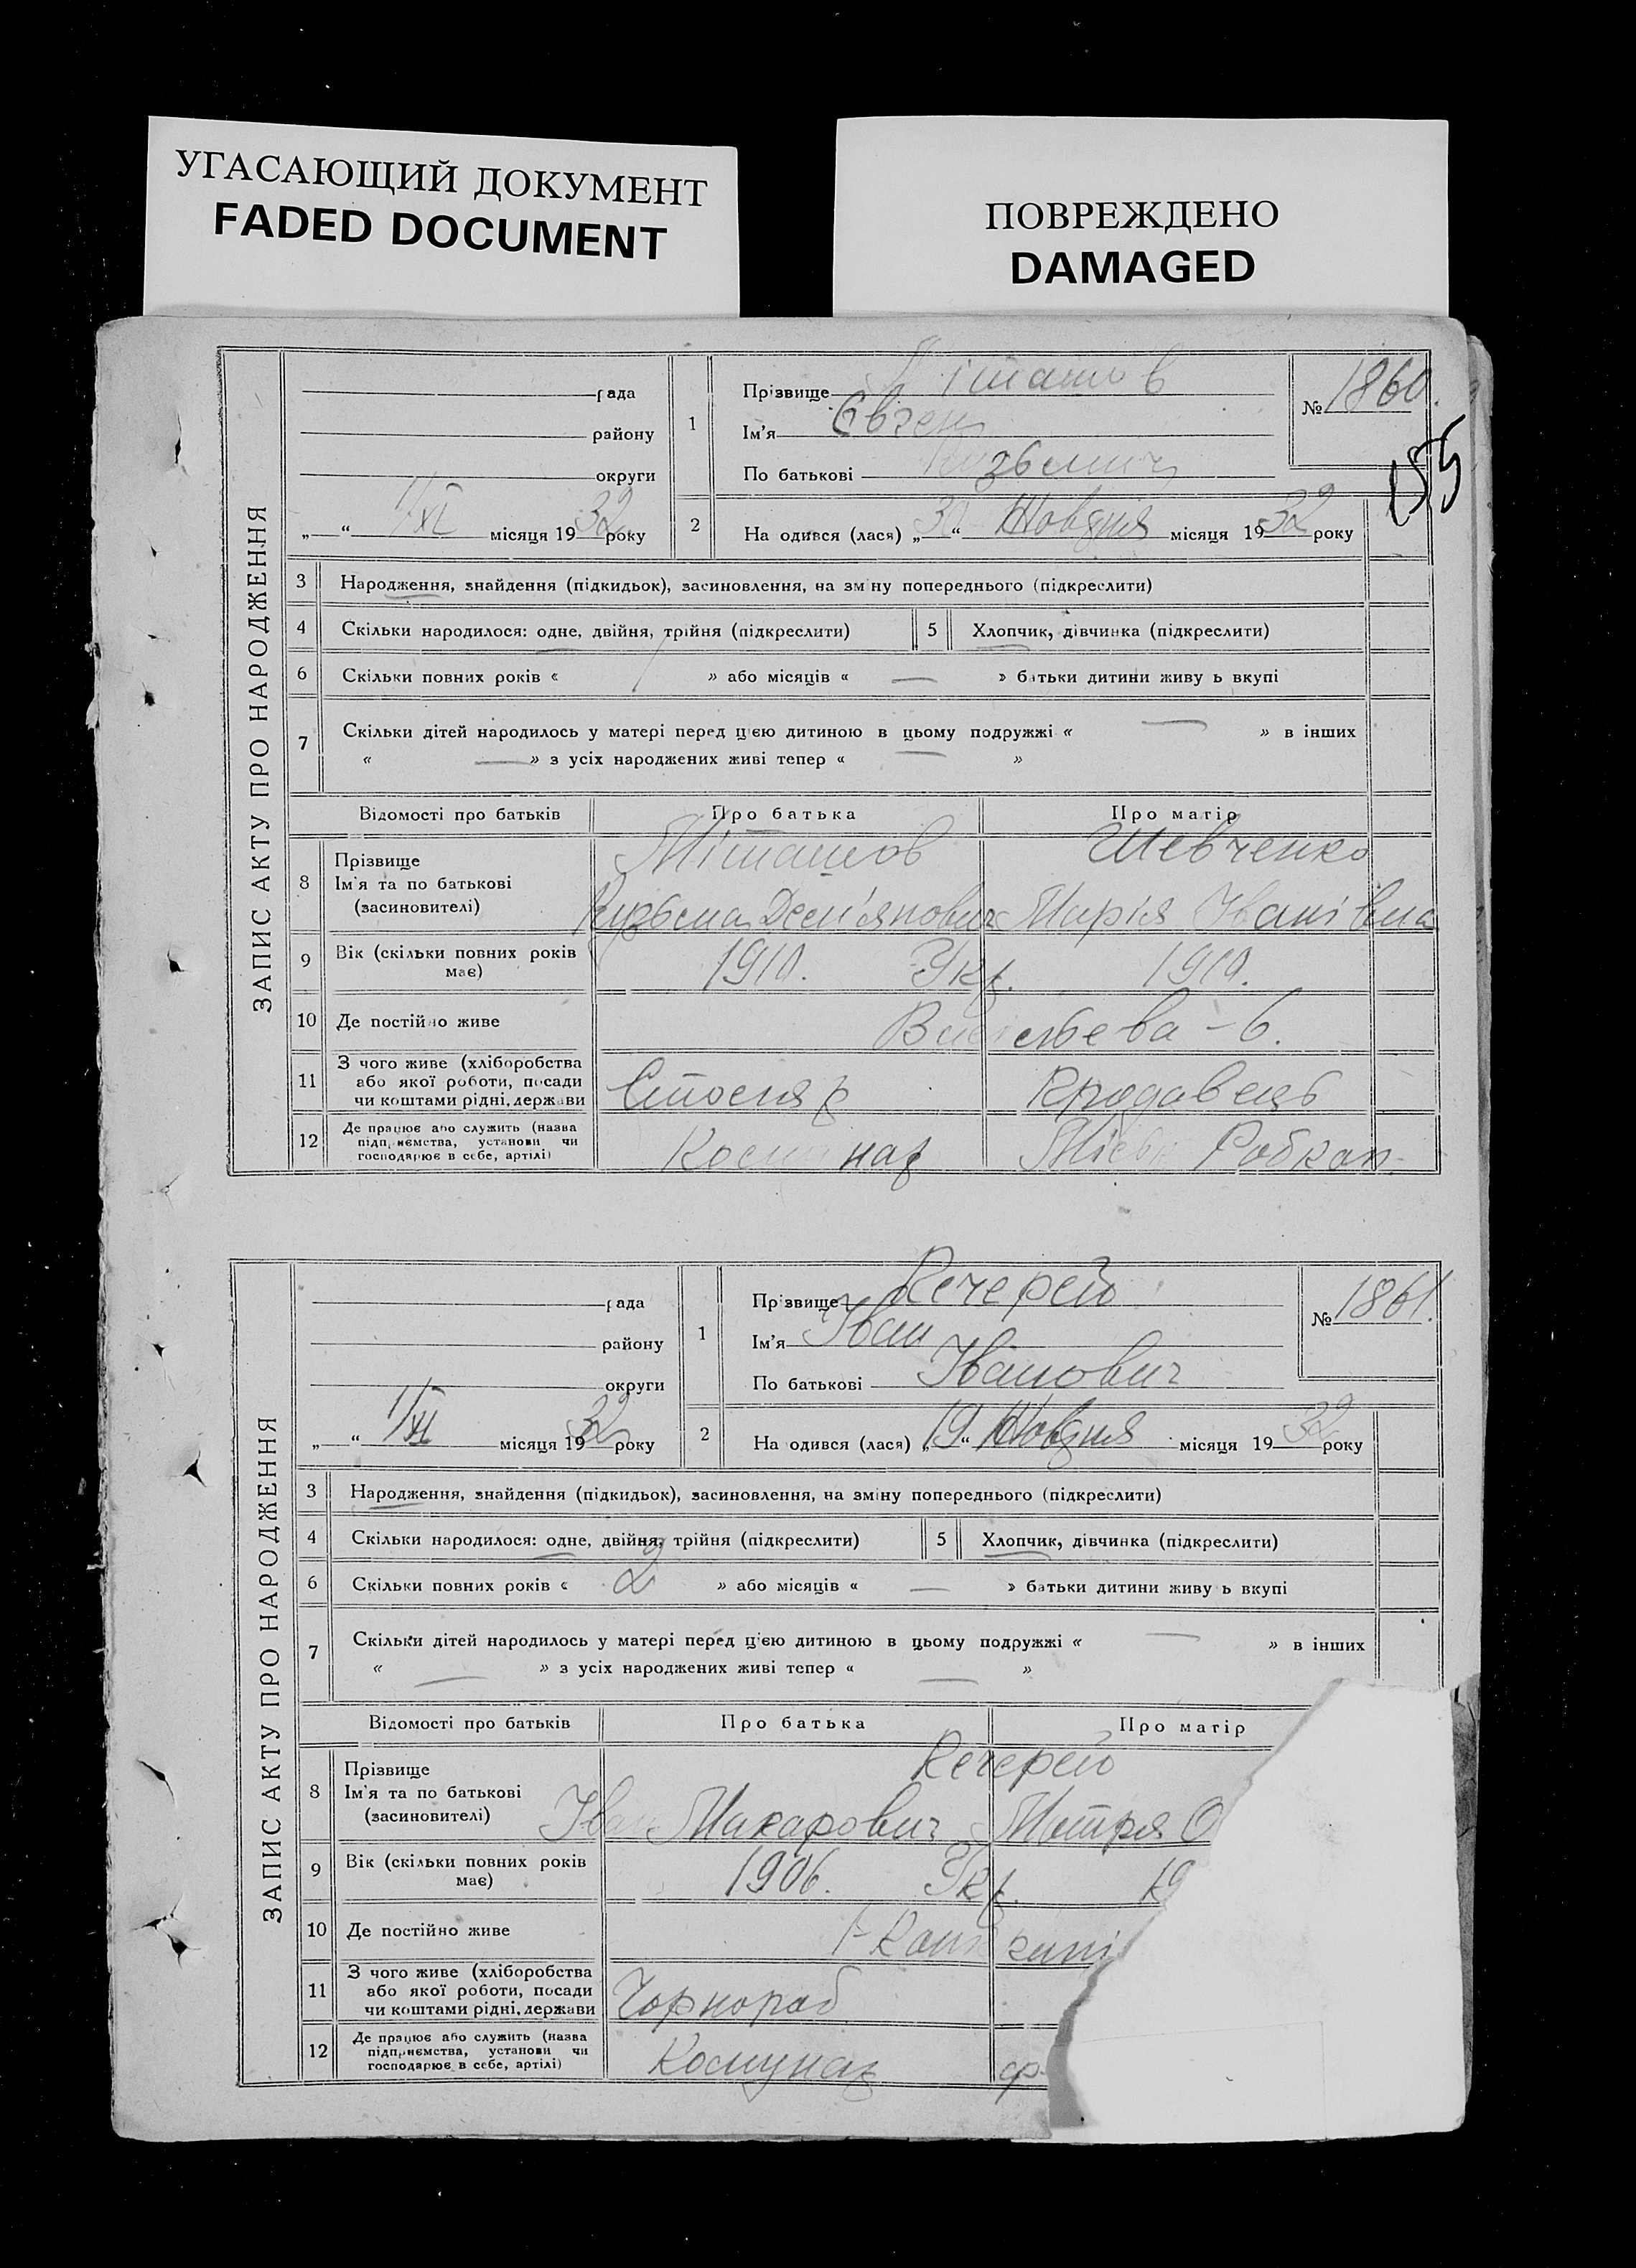 УГАСАЮЩИЙ ДОКУМЕНТ
FADED DOCUMENT
ПОВРЕЖДЕНО
DAMAGED
ЗАПИС АКТУ ПРО НАРОДЖЕННЯ
рада
району
округи
„ “ 1/XI місяця 1932 року
1
Прізвище
Ім'я Євген
По батькові Кузьмич
№ 1860.
155
2 На одився (лася) „ “ Жовтня місяця 1932 року
3 Народження, знайдення (підкидьок), засиновлення, на зміну попереднього (підкреслити)
4 Скільки народилося: одне, двійня, трійня (підкреслити)
5 Хлопчик, дівчинка (підкреслити)
6 Скільки повних років « / » або місяців « — » батьки дитини живу ь вкупі
7 Скільки дітей народилось у матері перед цією дитиною в цьому подружжі « — » в інших
« — » з усіх народжених живі тепер « — »
Відомості про батьків Про батька Про матір
8 Прізвище
Ім'я та по батькові
(засиновителі)
Міташов Шевченко
Кузьма Дем'янович Марія Іванівна
9 Вік (скільки повних років має) 1910. Укр. 1910.
10 Де постійно живе - 6.
11 З чого живе (хліборобства
або якої роботи, посади
чи коштами рідні, держави
Столяр Продавець
12 Де працює або служить (назва
підприємства, установи чи
господарює в себе, артілі)
Робкоп.
ЗАПИС АКТУ ПРО НАРОДЖЕННЯ
рада
району
округи
„ “ 1/XI місяця 1932 року
1
Прізвище Кечерей
Ім'я Іван
По батькові Іванович
№ 1861.
2 На одився (лася) „19“ Жовтня місяця 1932 року
3 Народження, знайдення (підкидьок), засиновлення, на зміну попереднього (підкреслити)
4 Скільки народилося: одне, двійня, трійня (підкреслити)
5 Хлопчик, дівчинка (підкреслити)
6 Скільки повних років « 2 » або місяців « — » батьки дитини живу ь вкупі
7 Скільки дітей народилось у матері перед цією дитиною в цьому подружжі « — » в інших
« — » з усіх народжених живі тепер « — »
Відомості про батьків Про батька Про матір
8 Прізвище
Ім'я та по батькові
(засиновителі)
Кечерей
Іван Макарович Мотря О
9 Вік (скільки повних років має) 1906. Укр. 19
10 Де постійно живе
11 З чого живе (хліборобства
або якої роботи, посади
чи коштами рідні, держави
Чорнороб
12 Де працює або служить (назва
підприємства, установи чи
господарює в себе, артілі)
Комунар